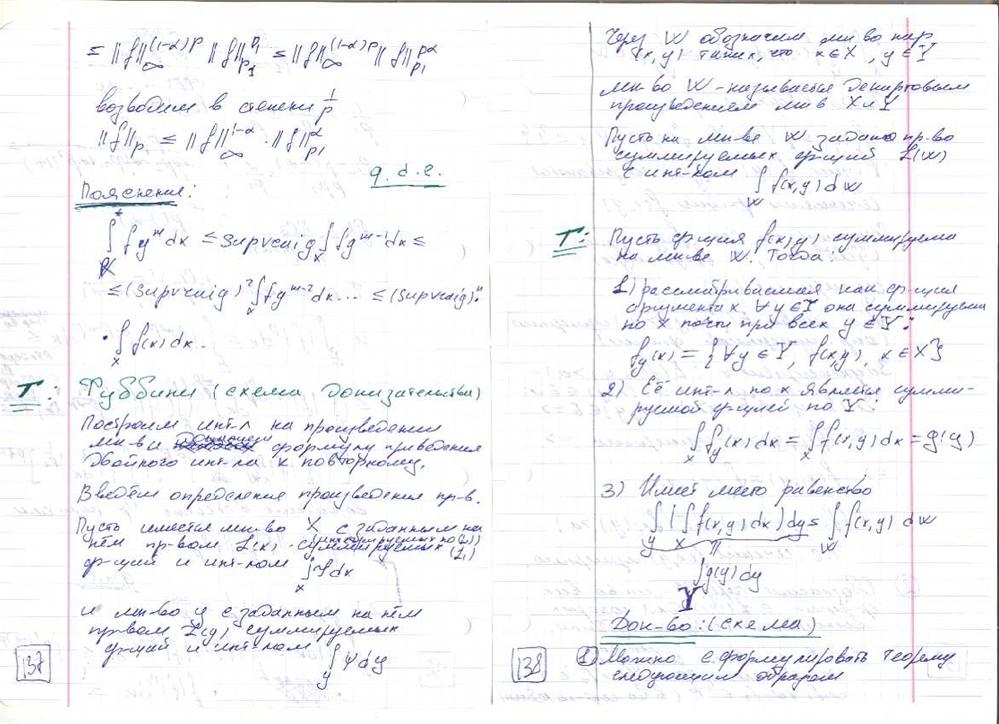 ≤ ||f||_∞^{(1-α)p} ||f||_{p_1}^{p_1} ≤ ||f||_∞^{(1-α)p} ||f||_{p_1}^{pα}
возводим в степени 1/p
||f||_p ≤ ||f||_∞^{1-α} · ||f||_{p_1}^α
q. d. e.
Пояснения:
∫ f g^m dx ≤ supvraig ∫_X f g^{m-1} dx ≤
≤ (supvraig)² ∫_X f g^{m-2} dx ... ≤ (supvraig)^m ·
· ∫_X f(x) dx.
Т: Фуббини (схема доказательства)
Построим инт-л на произведении
мн-в и формулу приведения
двойного инт-ла к повторному.
Введём определения произведения пр-в.
Пусть имеется мн-во X с заданным на
нём пр-вом L(x) суммируемых (L_1)
ф-ций и инт-лом ∫_X φ dx
и мн-во y с заданным на нём
пр-вом L(y) суммируемых
ф-ций и инт-лом ∫_y ψ dy
137
Через W обозначим мн-во пар
(x, y) таких, что x ∈ X, y ∈ Y
Мн-во W - называется декартовым
произведением мн-в X и Y
Пусть на мн-ве W задано пр-во
суммируемых ф-ций L(W)
с инт-лом ∫_W f(x, y) dW
Т: Пусть ф-ция f(x, y) суммируема
на мн-ве W. Тогда:
1) рассматриваемая как ф-ция
аргумента x ∀y ∈ Y она суммируема
по x почти при всех y ∈ Y:
f_y(x) = {∀y ∈ Y, f(x,y), x ∈ X}
2) Её инт-л по x является сумми-
руемой ф-цией по Y:
∫_X f_y(x) dx = ∫_X f(x, y) dx = g(y)
3) Имеет место равенство
∫_y (∫_X f(x, y) dx) dy = ∫_W f(x, y) dW
∫_Y g(y) dy
Док-во: (схема)
138
1 Можно сформулировать теорему
следующим образом